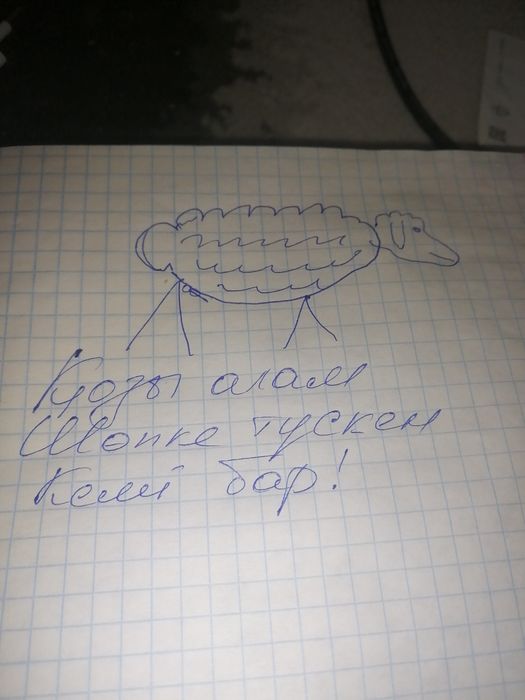 Қозы алам
Шопке тускен
Келі бар!